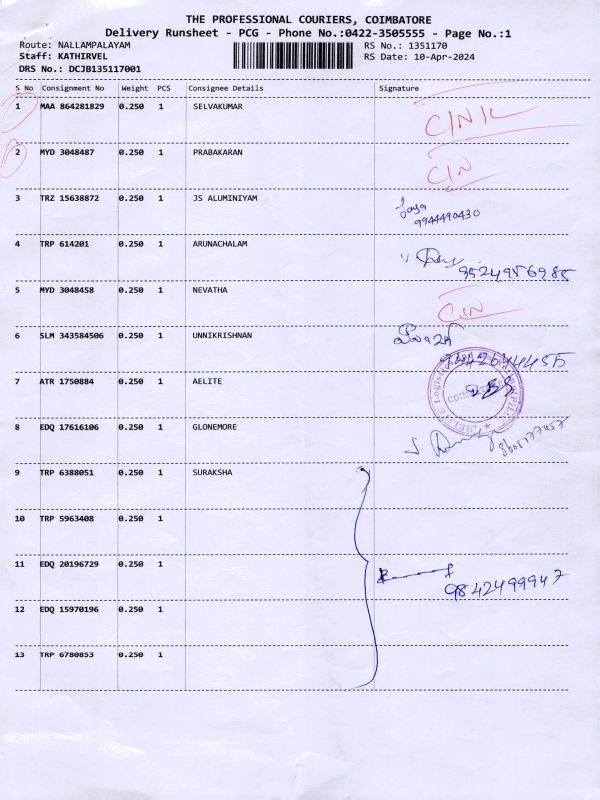 THE PROFESSIONAL COURIERS, COIMBATORE
Delivery Runsheet - PCG - Phone No.:0422-3505555 - Page No.:1
Route: NALLAMPALAYAM RS No.: 1351170
Staff: KATHIRVEL RS Date: 10-Apr-2024
DRS No.: DCJB135117001
S No Consignment No Weight PCS Consignee Details Signature
1 MAA 864281829 0.250 1 SELVAKUMAR
2 MYD 3048487 0.250 1 PRABAKARAN CIN
3 TRZ 15638872 0.250 1 JS ALUMINIYAM
9944490430
4 TRP 614201 0.250 1 ARUNACHALAM
9524956985
5 MYD 3048458 0.250 1 NEVATHA CIN
6 SLM 343584506 0.250 1 UNNIKRISHNAN
7 ATR 1750884 0.250 1 AELITE
8 EDQ 17616106 0.250 1 GLONEMORE
9 TRP 6388051 0.250 1 SURAKSHA
10 TRP 5963408 0.250 1
11 EDQ 20196729 0.250 1
9842499947
12 EDQ 15970196 0.250 1
13 TRP 6780853 0.250 1